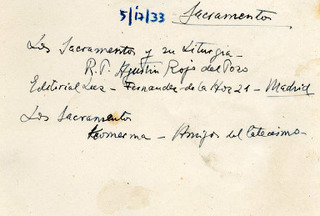 5/12/33 Sacramentos
Los Sacramentos y su Liturgia -
R.P. Agustin Rojo del Pozo
Editorial Luz - Fernandez de la Hoz 21 - Madrid
Los Sacramentos
- Amigos del Catecismo